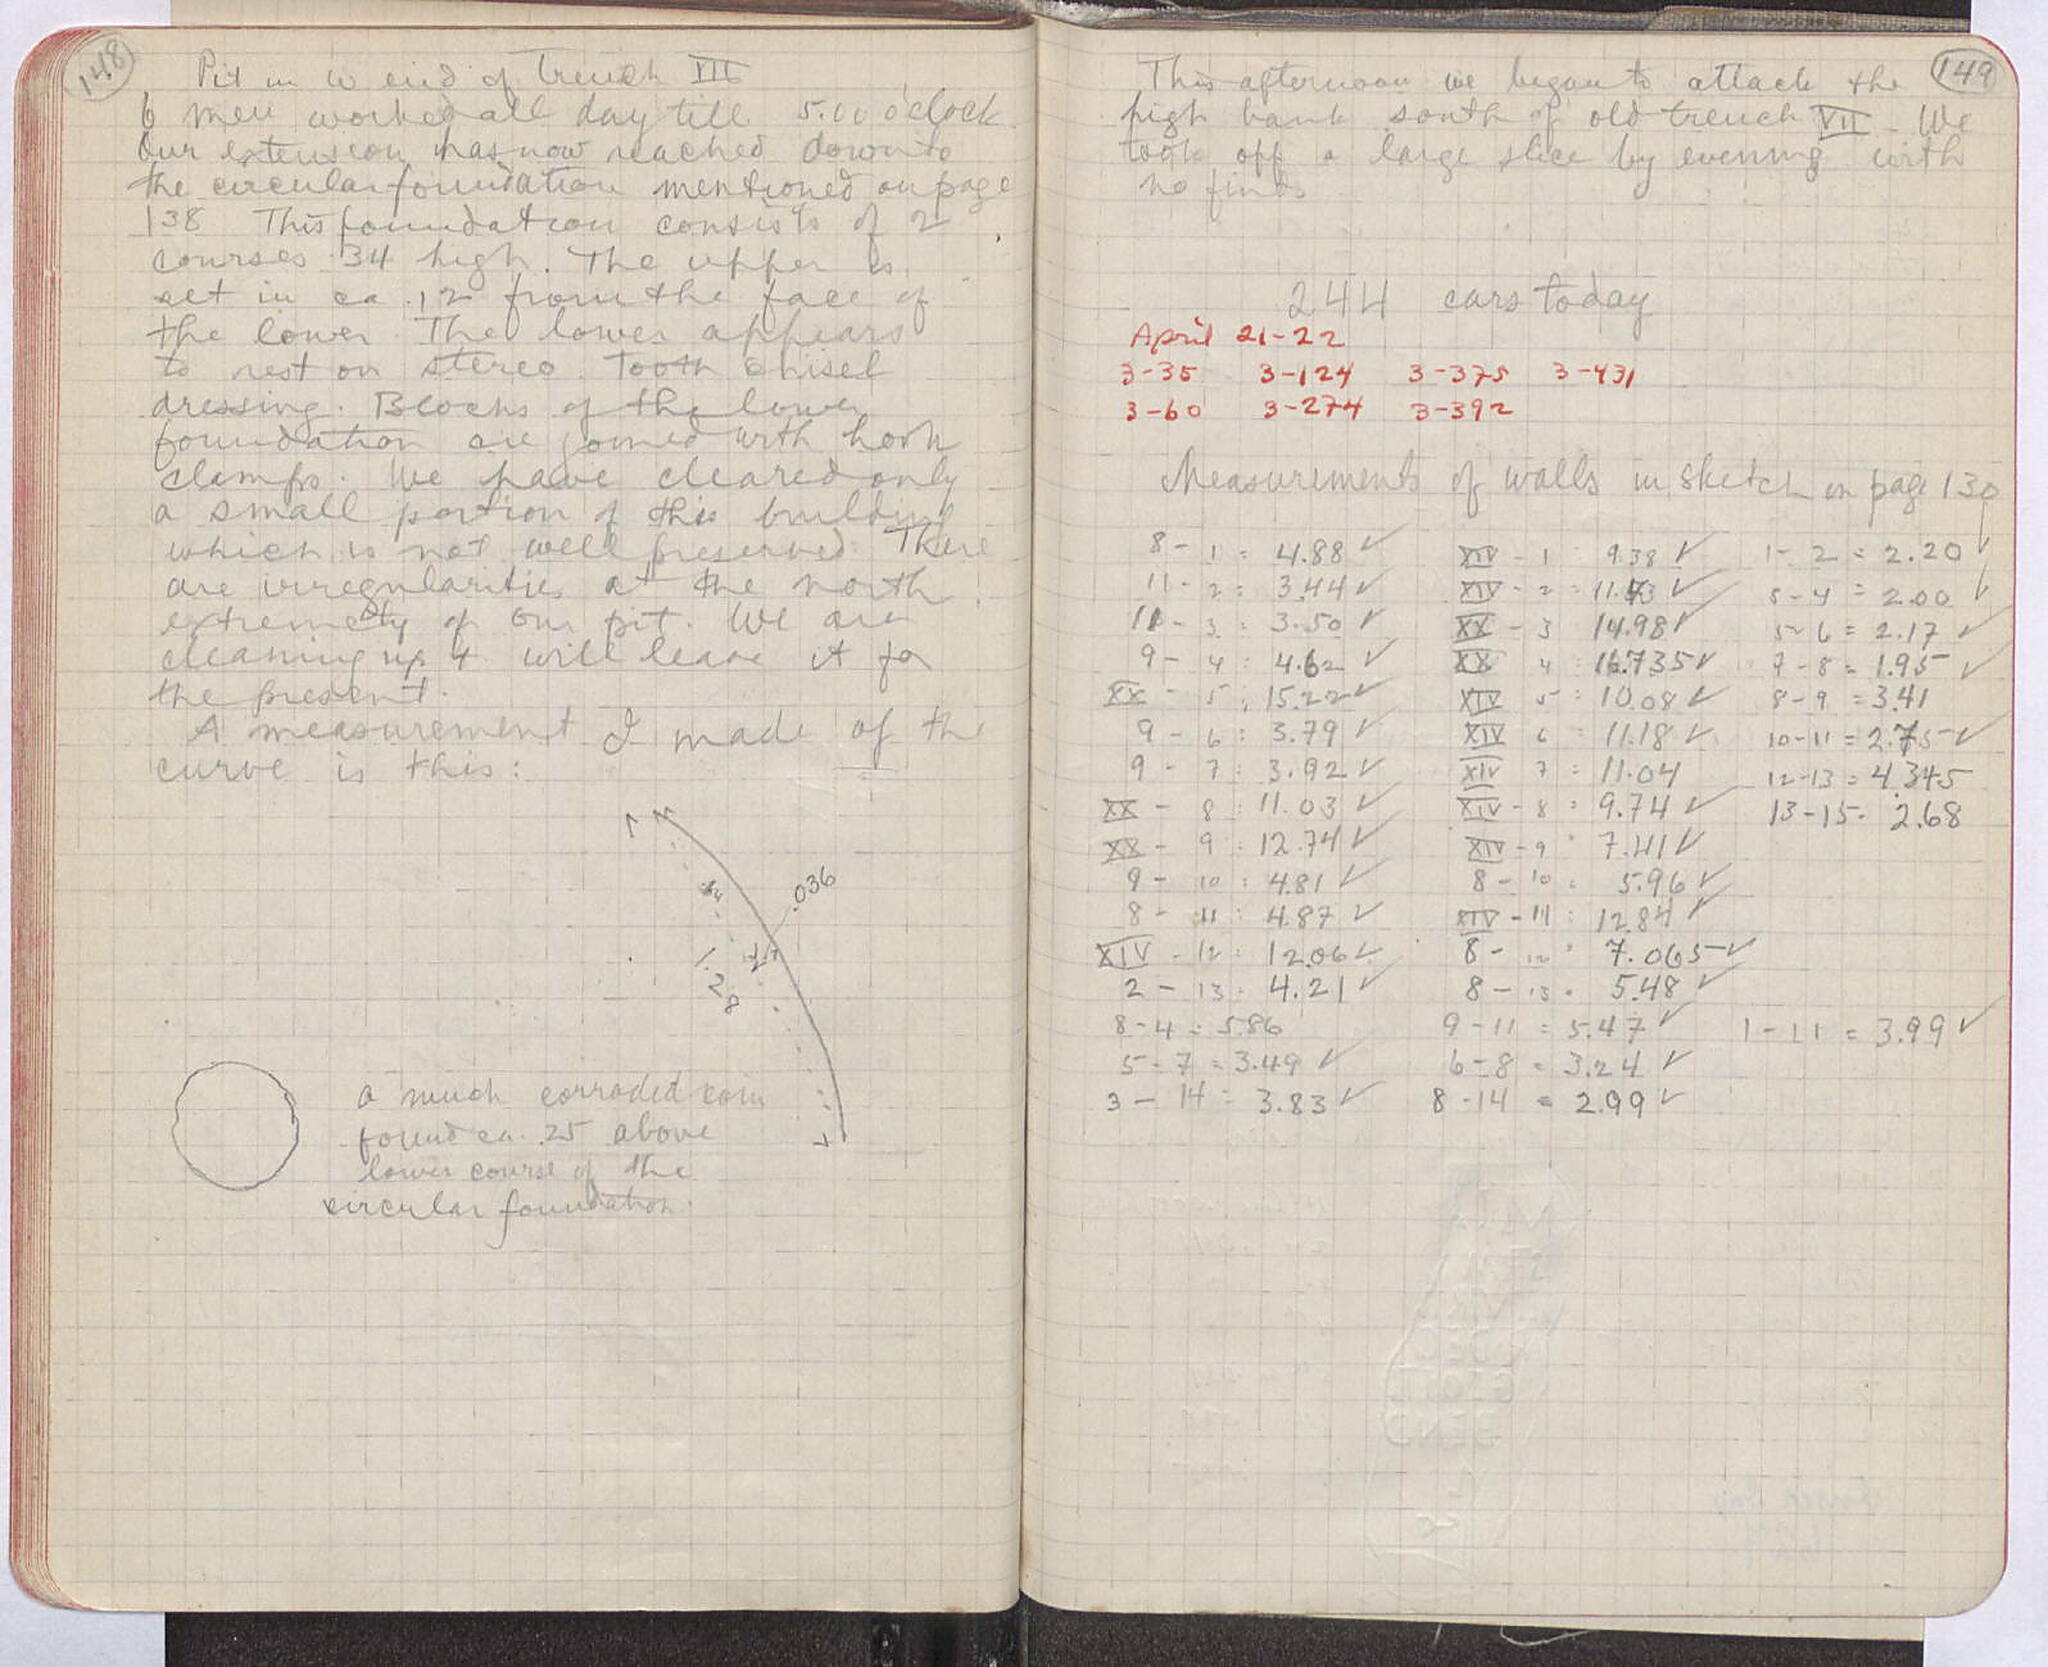 148
Pit in W end of Trench VII
6 men worked all day till 5.00 o'clock
Our extension has now reached down to
the circular foundation mentioned on page
138 This foundation consists of 2
courses .34 high. The upper is
set in ca .12 from the face of
the lower. The lower appears
to rest on stereo. Tooth chisel
dressing. Blocks of the lower
foundation are joined with hook
clamps. We have cleared only
a small portion of this building
which is not well preserved. There
are irregularities at the north
extremety of our pit. We are
cleaning up + will leave it for
the present.
A measurement I made of the
curve is this:
.036
1.28
a much corroded coin
found ca. .25 above
lower course of the
circular foundation.
149
This afternoon we began to attack the
high bank south of old trench VII. We
took off a large slice by evening with
no finds
244 cars today
April 21-22
3-35 3-124 3-375 3-431
3-60 3-274 3-392
Measurements of walls in sketch on page 130
8 - 1 : 4.88 ✓ XIV - 1 : 9.38 ✓ 1 - 2 = 2.20 ✓
11 - 2 : 3.44 ✓ XIV - 2 = 11.43 ✓ 5 - 4 = 2.00 ✓
11 - 3 : 3.50 ✓ XX - 3 14.98 ✓ 5 - 6 = 2.17 ✓
9 - 4 : 4.62 ✓ XX 4 : 16.735 ✓ 7 - 8 = 1.95 ✓
XX - 5 : 15.22 ✓ XIV 5 : 10.08 ✓ 8 - 9 = 3.41
9 - 6 : 3.79 ✓ XIV 6 = 11.18 ✓ 10-11 = 2.75 ✓
9 - 7 : 3.92 ✓ XIV 7 = 11.04 12-13 = 4.345
XX - 8 : 11.03 ✓ XIV - 8 = 9.74 ✓ 13-15 - 2.68
XX - 9 : 12.74 ✓ XIV - 9 " 7.41 ✓
9 - 10 : 4.81 ✓ 8 - 10 = 5.96 ✓
8 - 11 : 4.87 ✓ XIV - 11 : 12.84 ✓
XIV - 12 : 12.06 ✓ 8 - 12 " 7.065 ✓
2 - 13 . 4.21 ✓ 8 - 13 = 5.48 ✓
8 - 4 = 5.86 9 - 11 = 5.47 ✓ 1 - 11 = 3.99 ✓
5 - 7 = 3.49 ✓ 6 - 8 = 3.24 ✓
3 - 14 = 3.83 ✓ 8 - 14 = 2.99 ✓